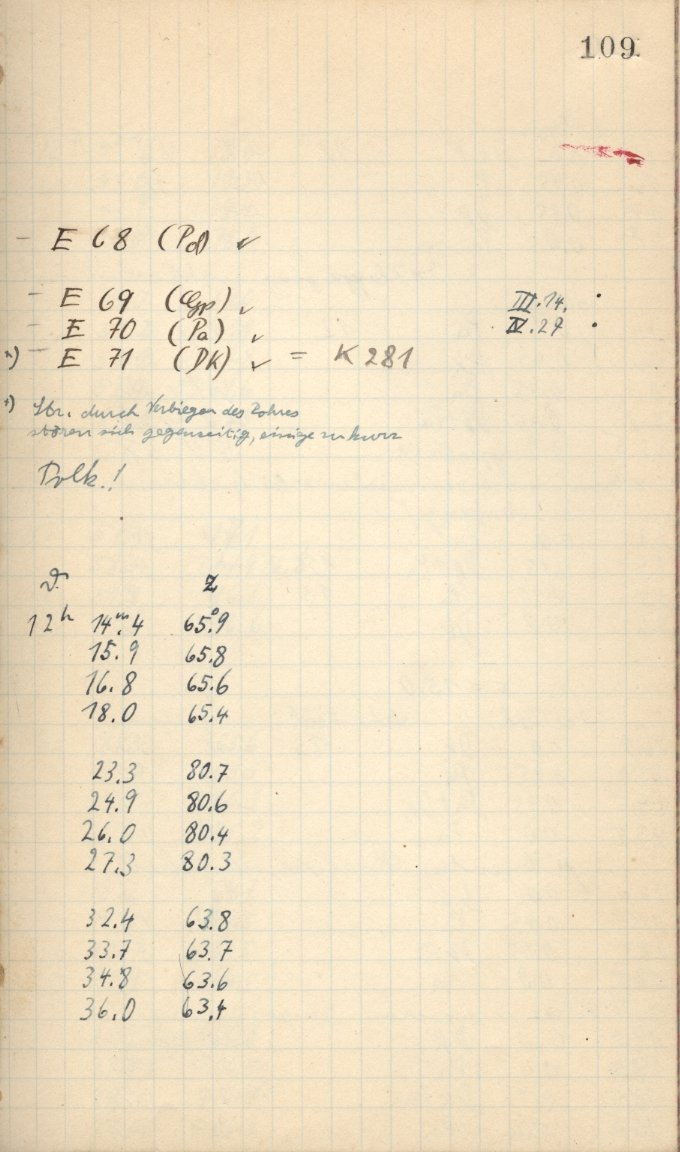 109
– E 68 (Pd) ✓
– E 69 (Gyp) ✓ III.14. •
– E 70 (Pa) ✓ IV.27 •
x) – E 71 (DK) ✓ = K 281
x) Str. durch Verbiegen des Rohres
stören sich gegenseitig, einige zu kurz
ϑ. z
12h 14m.4 65°.9
15.9 65.8
16.8 65.6
18.0 65.4
23.3 80.7
24.9 80.6
26.0 80.4
27.3 80.3
32.4 63.8
33.7 63.7
34.8 63.6
36.0 63.4